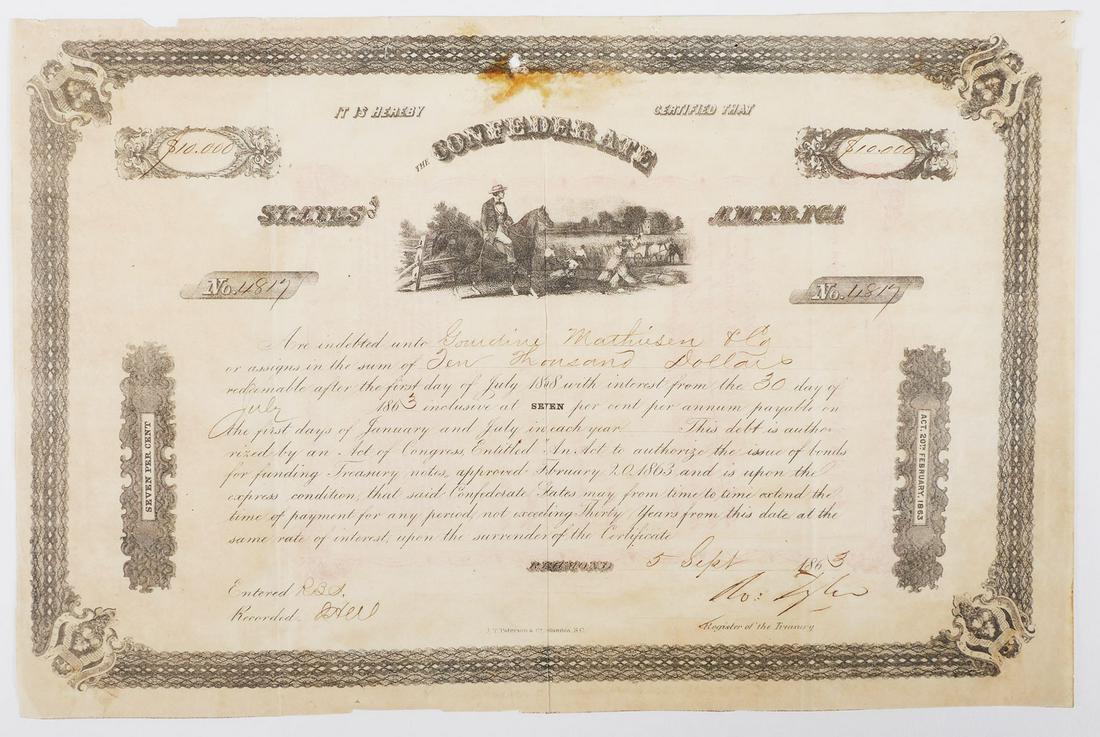 IT IS HEREBY CERTIFIED THAT
THE CONFEDERATE
$10.000 $10.000
STATES OF AMERICA
No. 4817 No. 4817
Are indebted unto Gourdin Mathiesen & Co
or assigns in the sum of Ten Thousand Dollars
redeemable after the first day of July 1868 with interest from the 30 day of
July 1863 inclusive at SEVEN per cent per annum payable on
the first days of January and July in each year This debt is author
rized by an Act of Congress Entitled An Act to authorize the issue of bonds
for funding Treasury notes, approved February 20 1863 and is upon the
express condition, that said Confederate States may from time to time extend the
time of payment for any period, not exceeding Thirty Years from this date at the
same rate of interest, upon the surrender of the Certificate
SEVEN PER CENT
ACT, 20TH FEBRUARY, 1863
RICHMOND 5 Sept 1863
Entered
Recorded
Ro: Tyler
Register of the Treasury
J.T. Paterson & Co. Columbia, S.C.